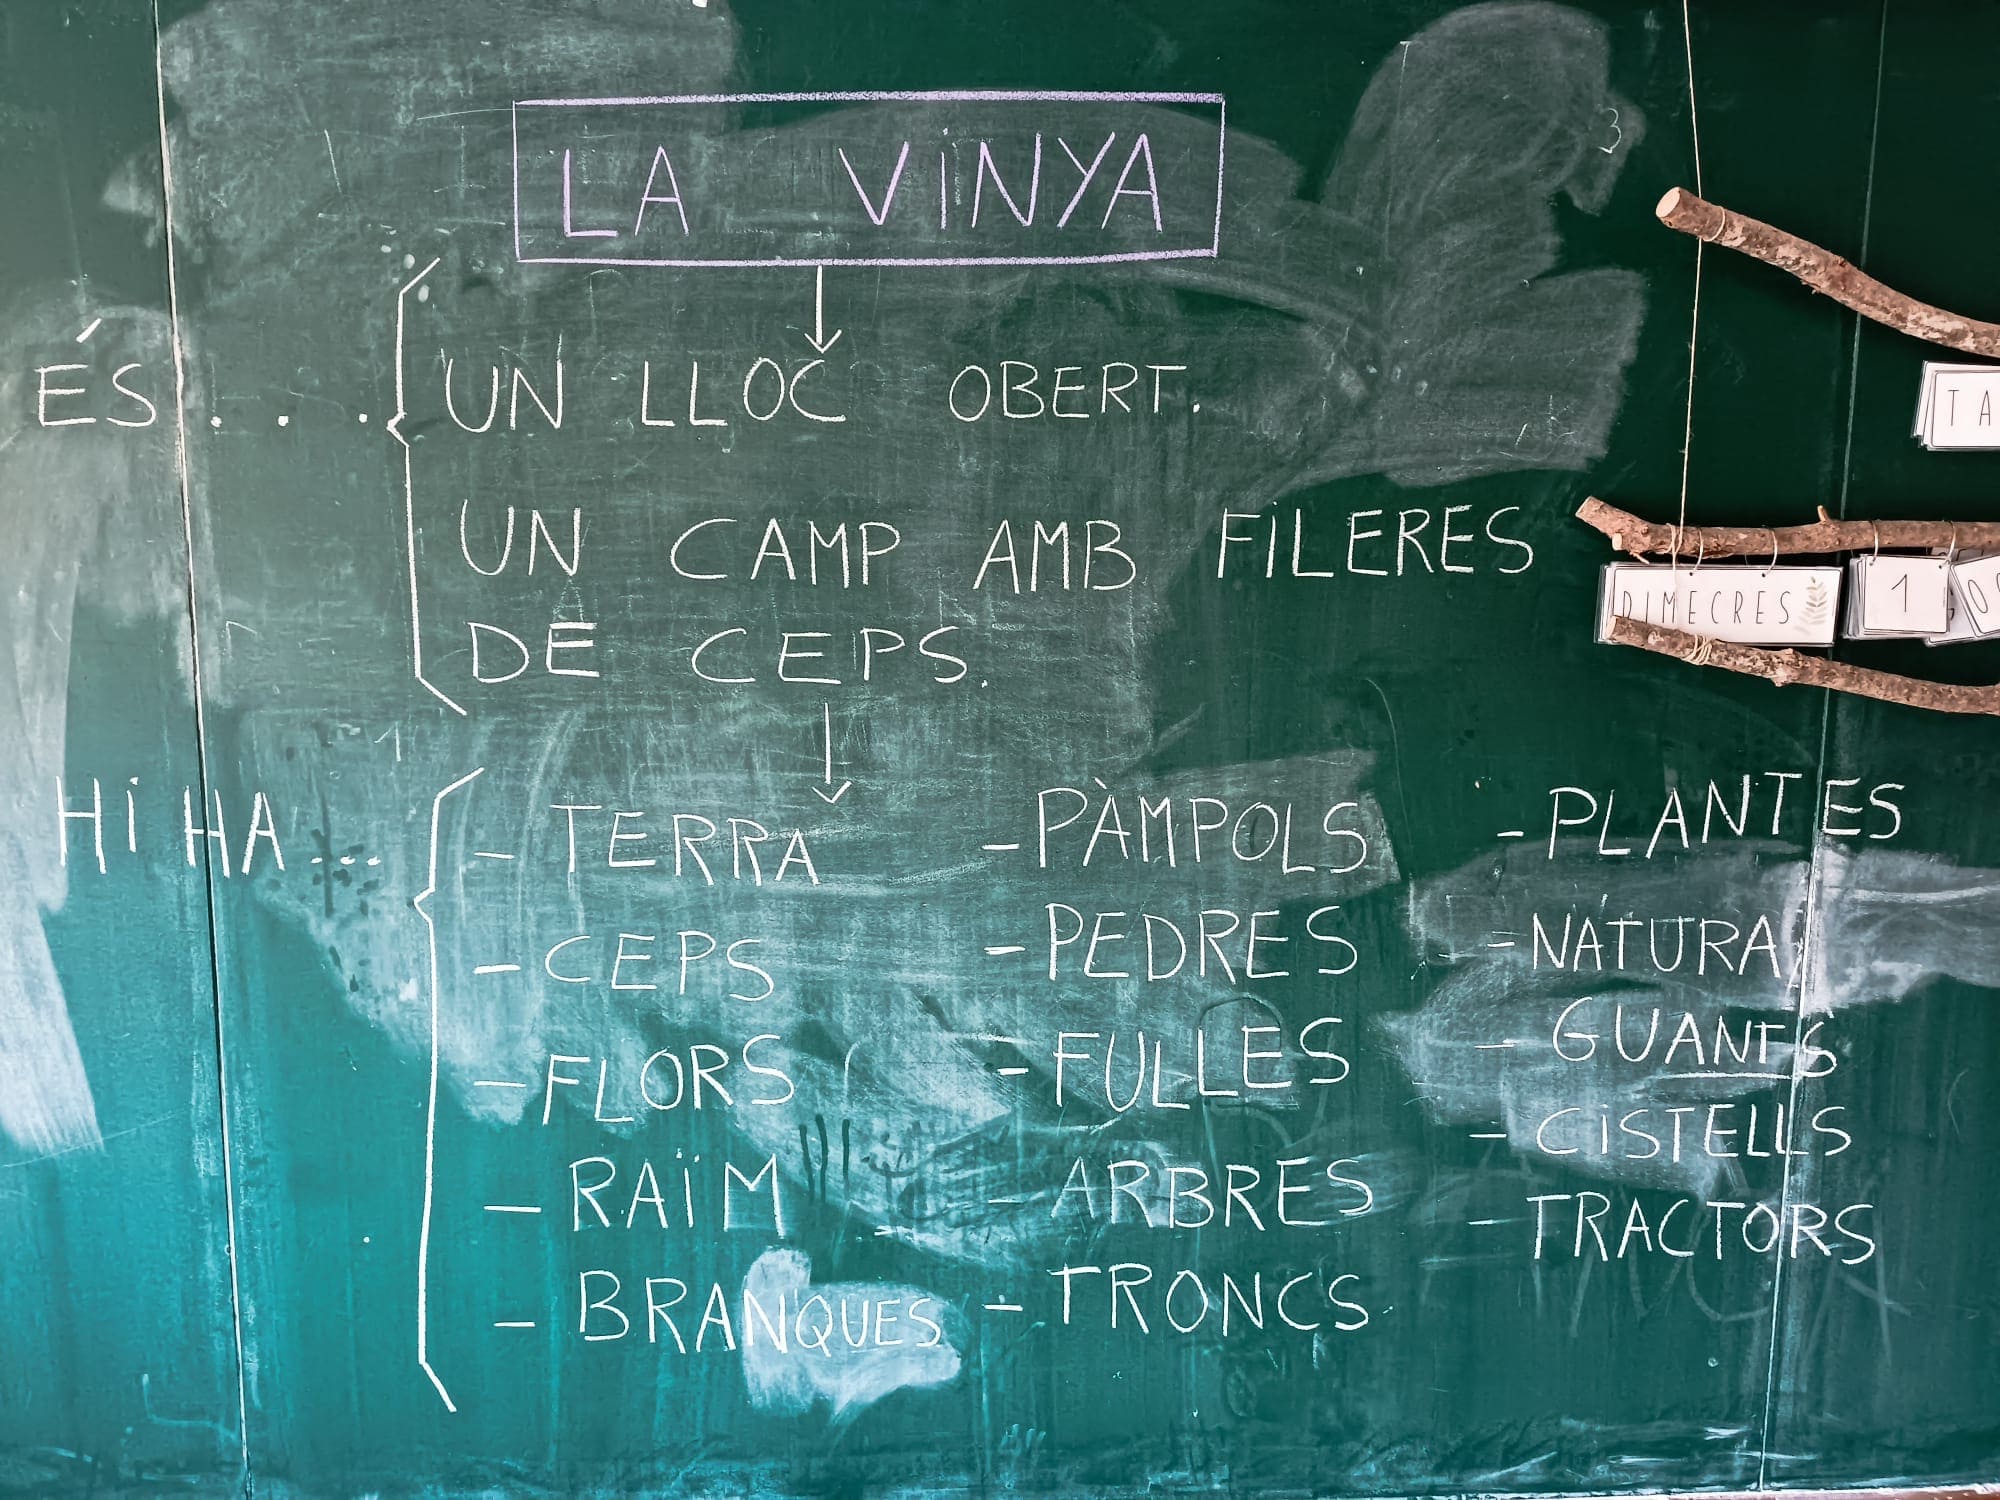 LA VINYA
ÉS . . . UN LLOC OBERT.
UN CAMP AMB FILERES
DE CEPS.
HI HA ... - TERRA - PÀMPOLS - PLANTES
- CEPS - PEDRES - NATURA
- FLORS - FULLES - GUANTS
- RAÏM - ARBRES - CISTELLS
- BRANQUES - TRONCS - TRACTORS
3
TA
DIMECRES 1